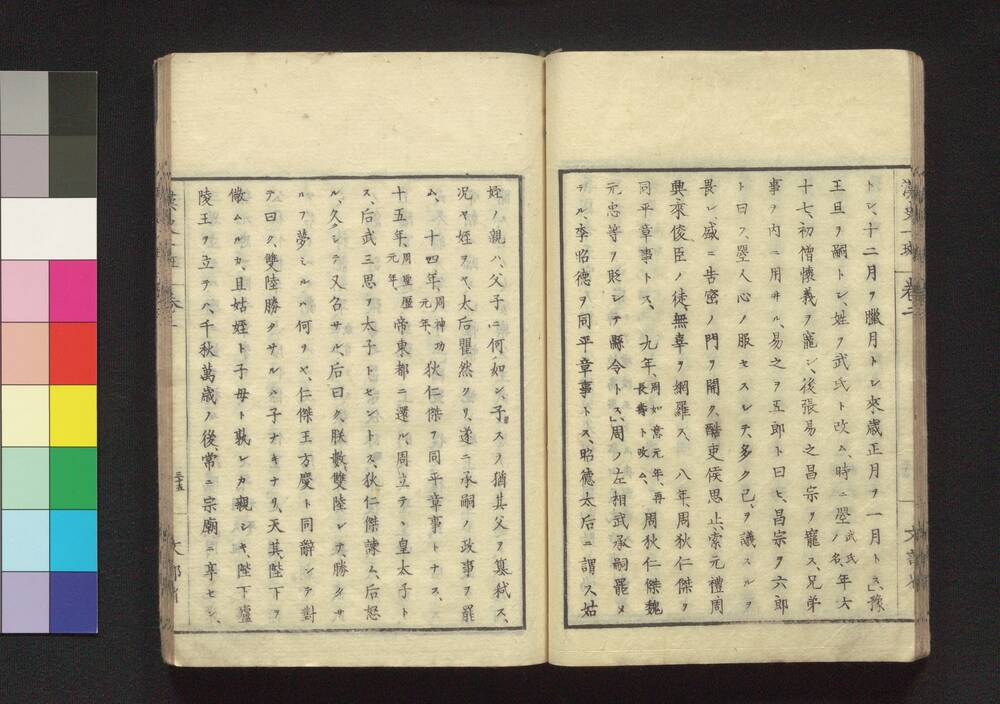 漢史一班 卷二
トシ、十二月ヲ臘月トシ來歳正月ヲ一月トス、豫
王旦ヲ嗣トシ、姓ヲ武氏ト改ム、時ニ曌武氏ノ名、年六
十七、初僧懷義ヲ寵シ、後張易之昌宗ヲ寵ス、兄弟
事ヲ内ニ用ヰル、易之ヲ五郎ト曰ヒ、昌宗ヲ六郎
ト曰フ、曌人心ノ服セスシテ、多ク己ヲ議スルヲ
畏レ、盛ニ告密ノ門ヲ開ク、酷吏侯思止、索元禮周
興、來俊臣ノ徒、無辜ヲ網羅ス、 八年、周狄仁傑ヲ
同平章事トス、 九年、周如意元年、再長壽ト改ム、周狄仁傑魏
元忠等ヲ貶シテ縣令トス、周ノ左相武承嗣罷メ
テル、李昭德ヲ同平章事トス、昭德太后ニ謂ス姑
姪ノ親ハ、父子ニ何如シ、子スノ猶其父ヲ簒弑ス、
况ヤ姪ヲヤ、太后瞿然タリ、遂ニ承嗣ノ政事ヲ罷
ム、 十四年、周神功元年、狄仁傑ヲ同平章事トナス、
十五年、周聖歴元年、帝東都ニ還ル、周立テヽ皇太子ト
ス、后武三思ヲ太子トセントス、狄仁傑諫ム、后怒
ル、久クシテ又召サル、后曰ク、朕數雙陸シテ勝タサ
ルヲ夢ミルハ何ヲヤ、仁傑王方慶ト同辭シテ對
テ曰ク、雙陸勝タサルハ子ナキナリ、天其陛下ヲ
儆ムルカ、且姑姪ト子母ト孰レカ親シキ、陛下廬
陵王ヲ立テハ、千秋萬歳ノ後、常ニ宗廟ニ享セン、
三十五
文部省